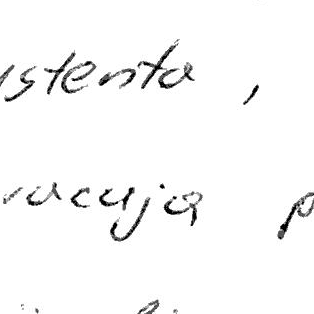 ystenta,
racują p